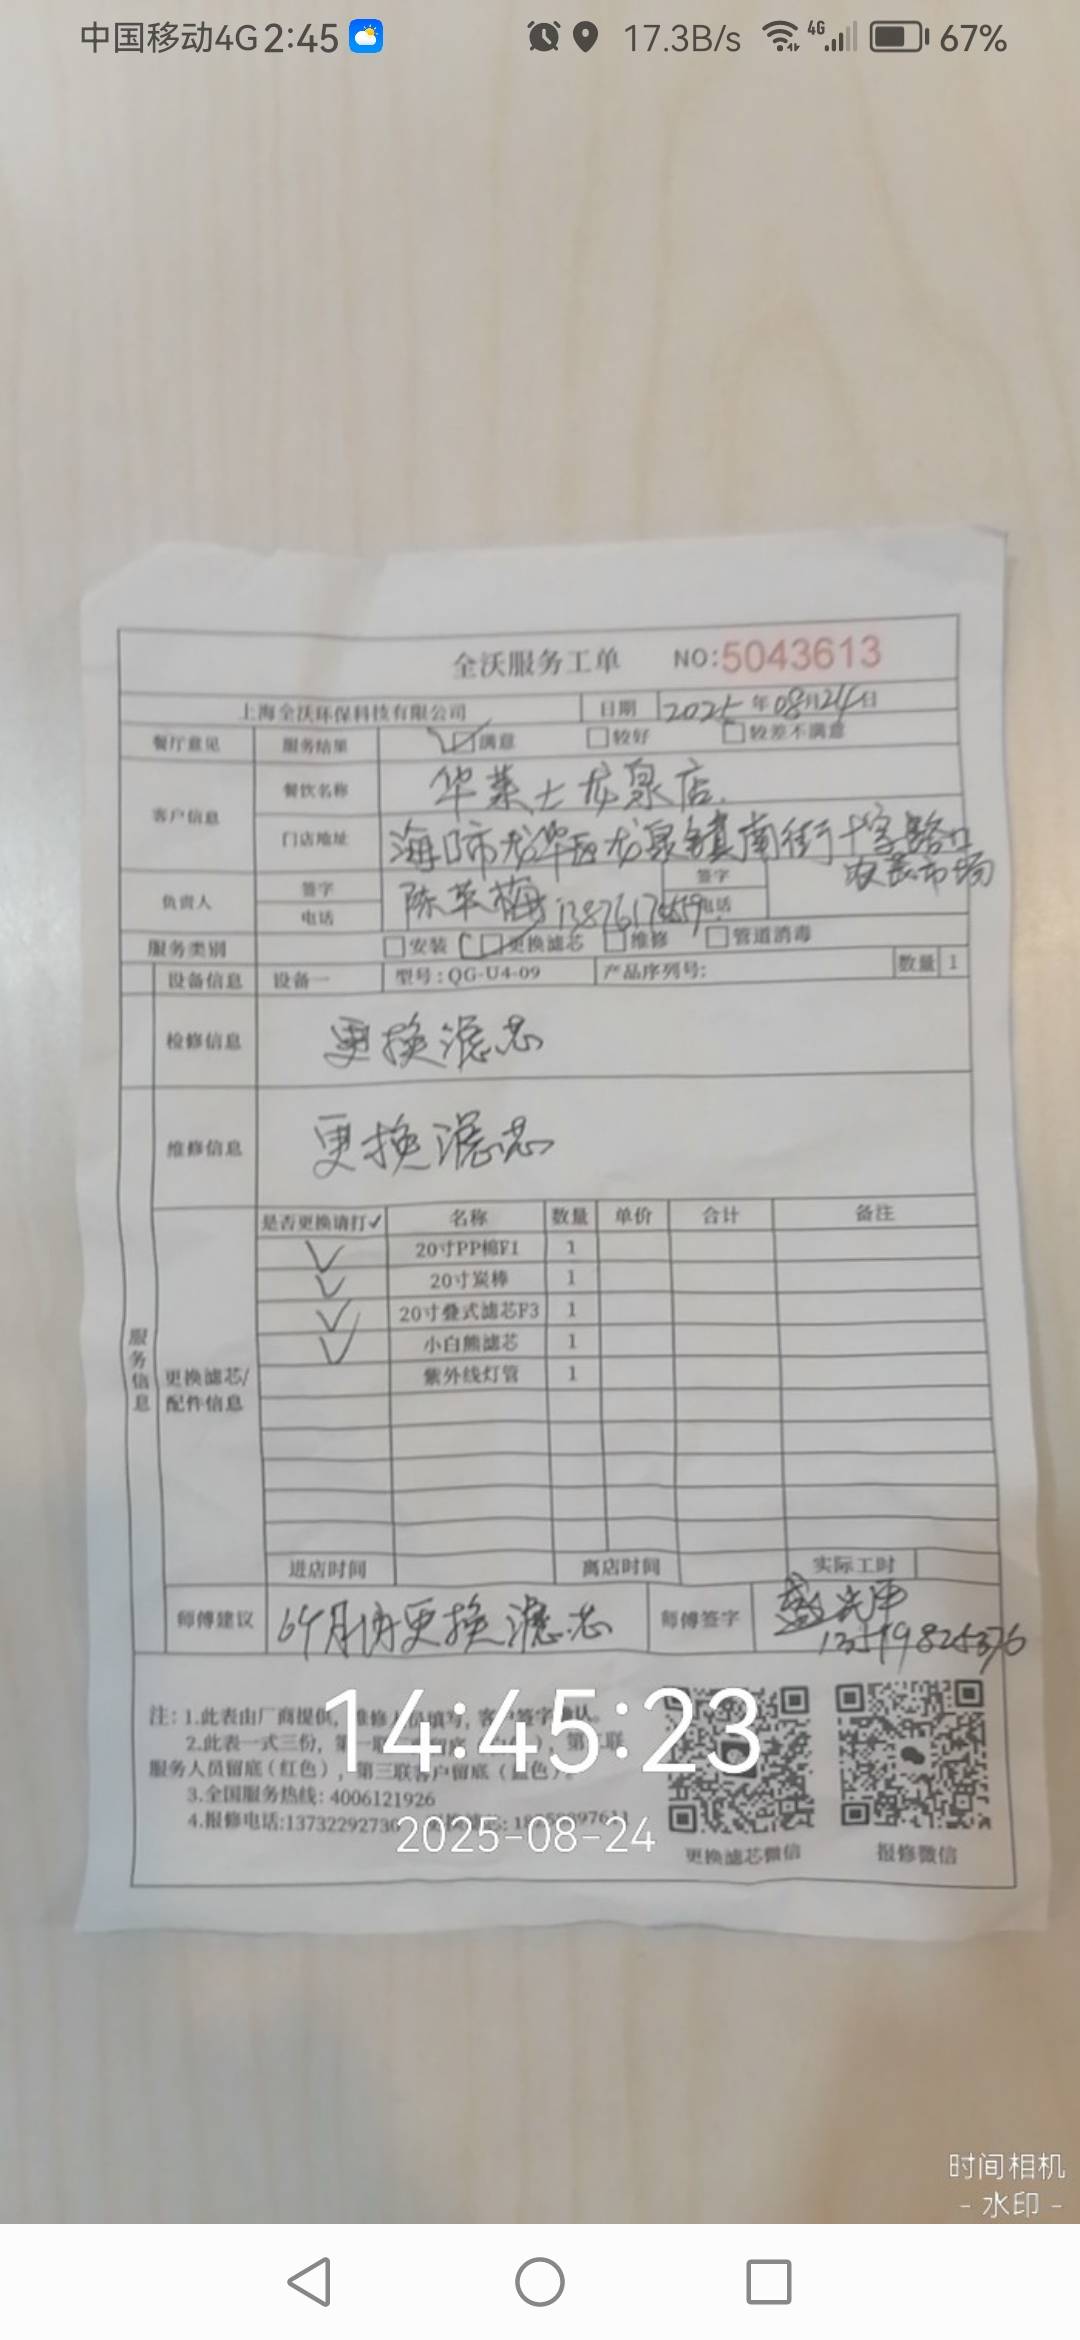 中国移动4G 2:45 17.3B/s 4G 67%
全沃服务工单 NO:5043613
上海全沃环保科技有限公司 日期 2025年08月24日
餐厅意见 服务结果 满意 较好 较差不满意
客户信息 餐饮名称 华莱士龙泉店
门店地址 海口市龙华区龙泉镇南街十字路口
农贸市场
负责人 签字 陈 梅 签字
电话 电话
服务类别 安装 更换滤芯 维修 管道消毒
设备信息 设备一 型号:QG-U4-09 产品序列号: 数量 1
检修信息 更换滤芯
维修信息 更换滤芯
服务信息
更换滤芯/
配件信息
是否更换请打✓ 名称 数量 单价 合计 备注
✓ 20寸PP棉F1 1
✓ 20寸炭棒 1
✓ 20寸叠式滤芯F3 1
✓ 小白熊滤芯 1
紫外线灯管 1
进店时间 离店时间 实际工时
师傅建议 6个月 更换滤芯 师傅签字
注: 1.此表由厂商提供, 维修人员填写, 客户签字确认。
2.此表一式三份, 第一联
服务人员留底(红色), 第三联客户留底(蓝色)。
3.全国服务热线: 4006121926
4.报修电话:1373229273
更换滤芯微信 报修微信
14:45:23
2025-08-24
时间相机
- 水印 -